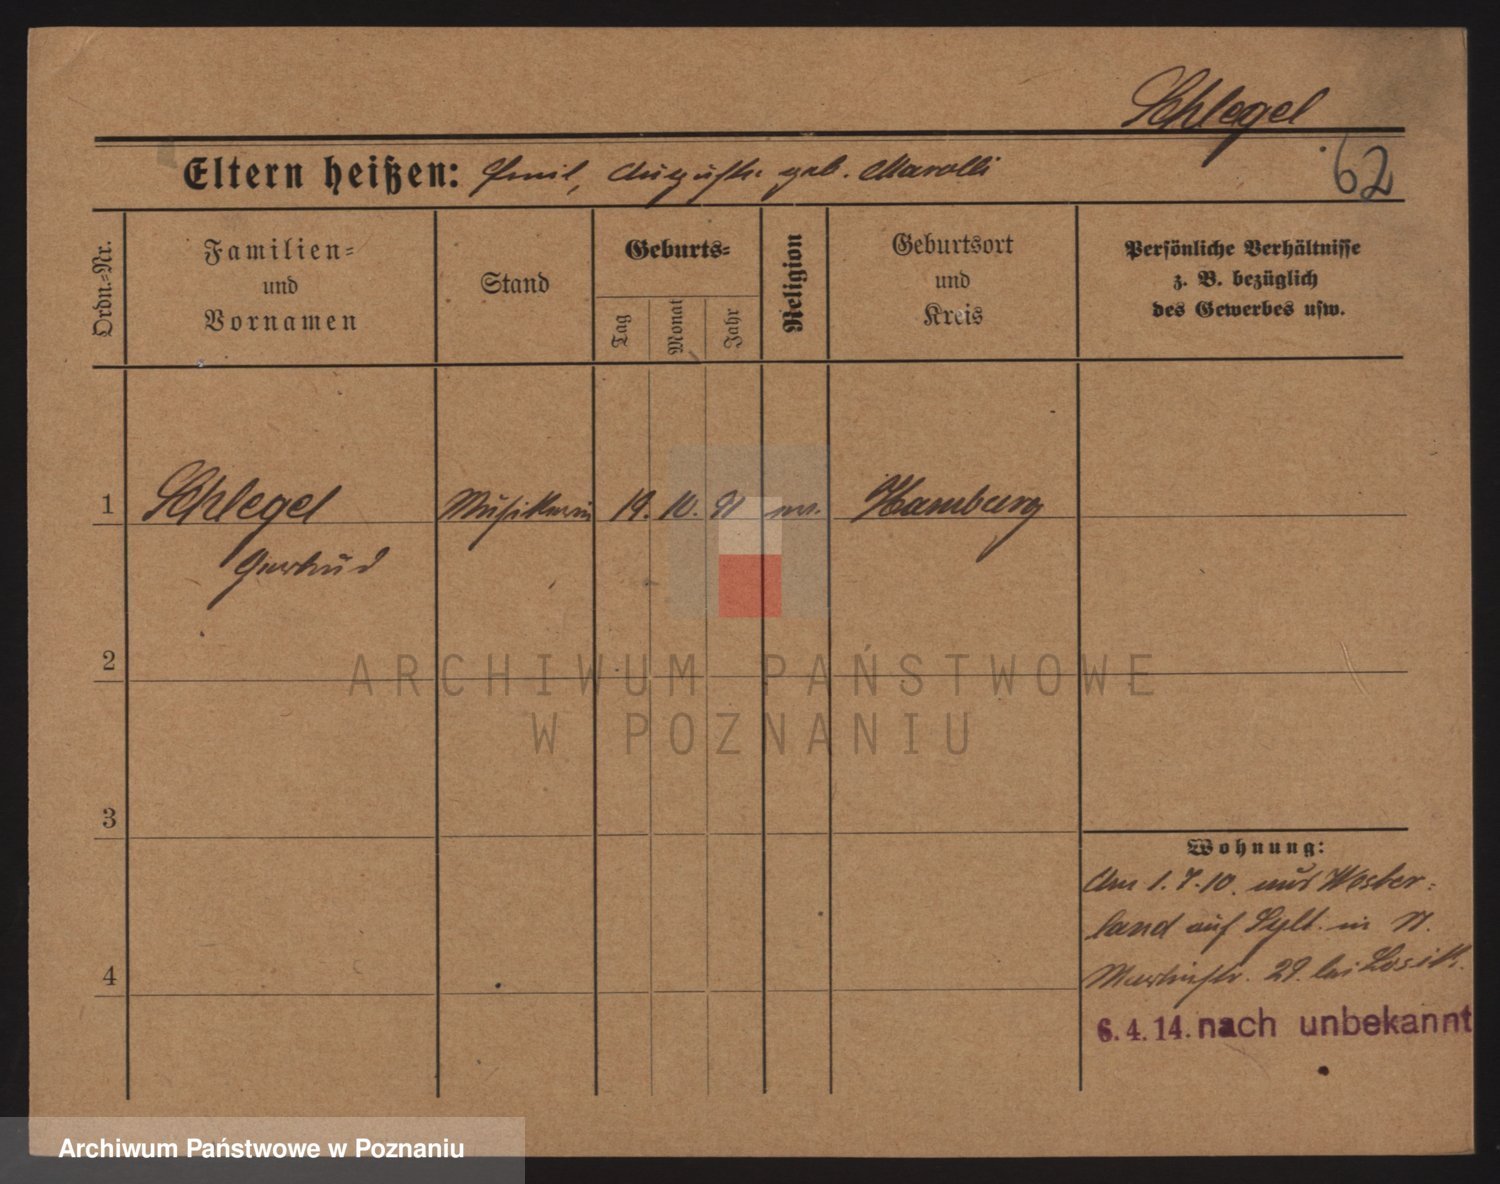 Schlegel
Eltern heißen: Emil, Auguste geb. Marolli
62
Ordn.-Nr.
Familien-
und
Vornamen
Stand
Geburts-
Tag
Monat
Jahr
Religion
Geburtsort
und
Kreis
Persönliche Verhältnisse
z. B. bezüglich
des Gewerbes usw.
1 Schlegel Musikerin 19. 10. 91 Hamburg
Gertrud
2
ARCHIWUM PAŃSTWOWE
W POZNANIU
3
4
Wohnung:
Am 1.7.10. aus Wester-
land auf Sylt. in
Martinstr. 29. bei
6.4.14. nach unbekannt
Archiwum Państwowe w Poznaniu